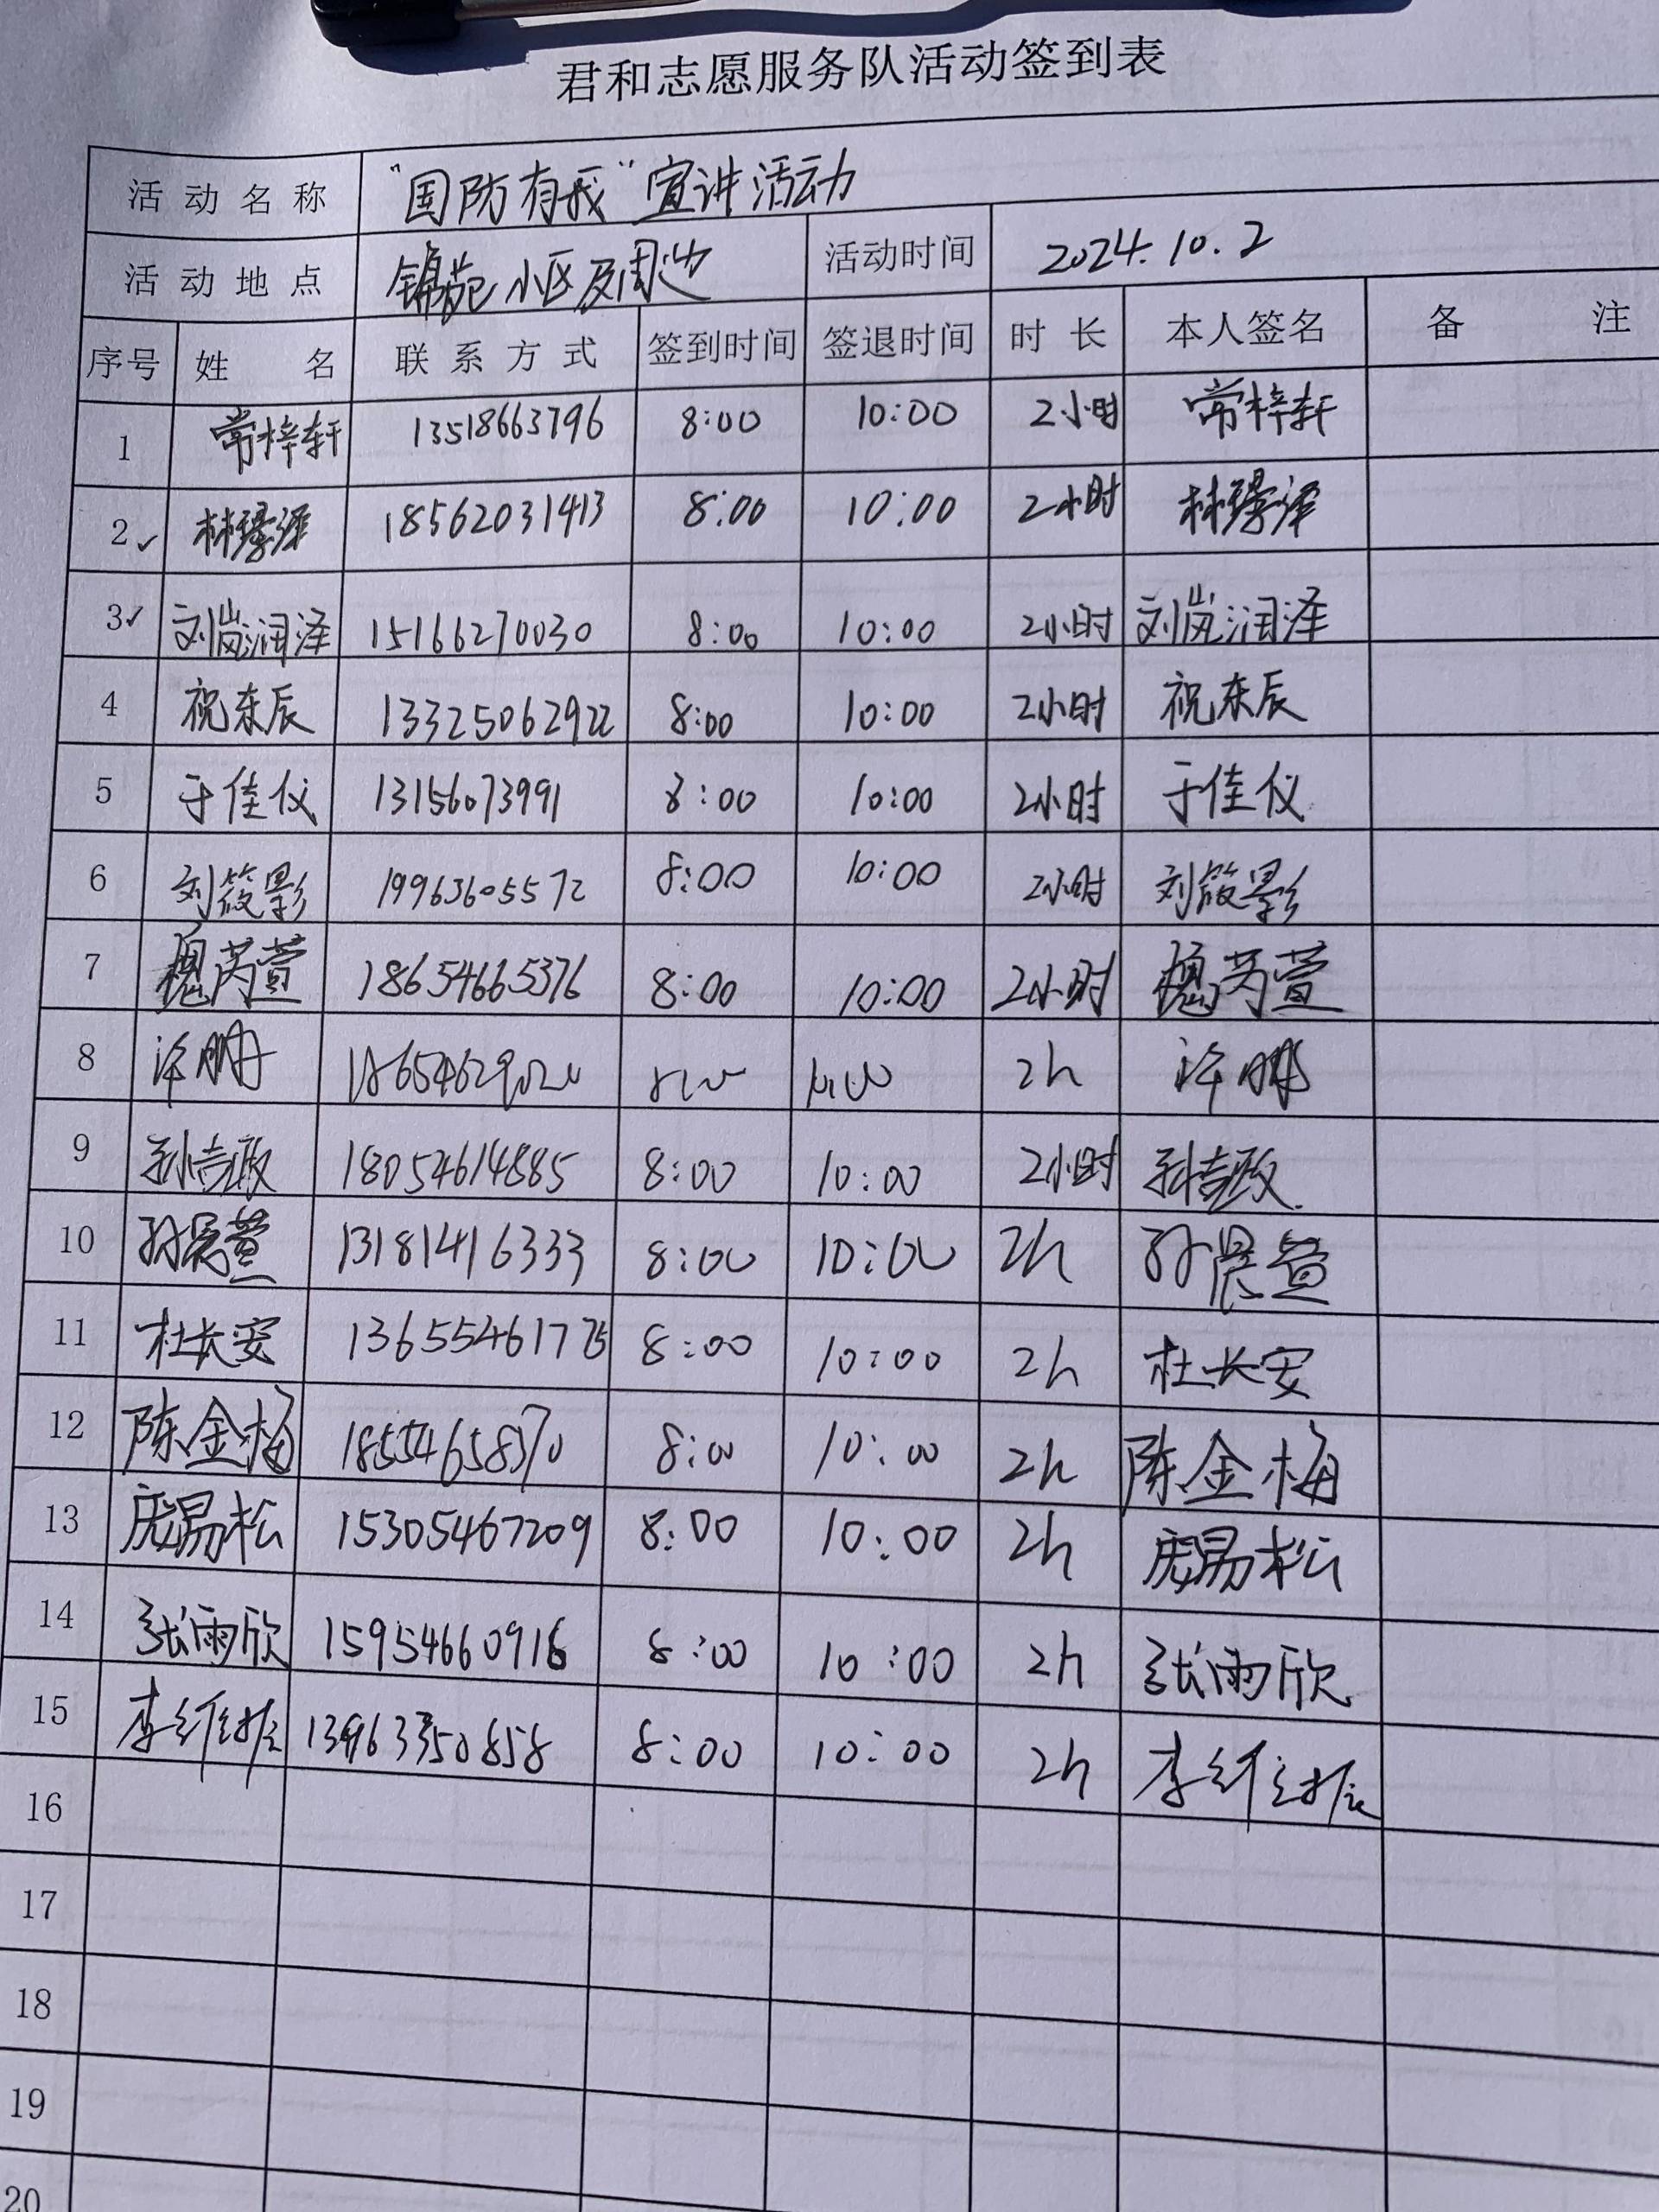 君和志愿服务队活动签到表
活动名称 "国防有我"宣讲活动
活动地点 锦苑小区及周边 活动时间 2024.10.2
序号 姓名 联系方式 签到时间 签退时间 时长 本人签名 备注
1 常梓轩 13518663796 8:00 10:00 2小时 常梓轩
2✓ 林璟泽 18562031413 8:00 10:00 2小时 林璟泽
3✓ 刘岚润泽 15166270030 8:00 10:00 2小时 刘岚润泽
4 祝东辰 13325062922 8:00 10:00 2小时 祝东辰
5 于佳仪 13156073991 8:00 10:00 2小时 于佳仪
6 刘筱影 19963605572 8:00 10:00 2小时 刘筱影
7 芮萱 18654665376 8:00 10:00 2小时 芮萱
8 许鹏 2h 许鹏
9 孙志政 18054614885 8:00 10:00 2小时 孙志政
10 孙晨萱 13181416333 8:00 10:00 2h 孙晨萱
11 杜长安 8:00 10:00 2h 杜长安
12 陈金梅 18554658370 8:00 10:00 2h 陈金梅
13 庞易松 15305467209 8:00 10:00 2h 庞易松
14 张雨欣 15954660916 8:00 10:00 2h 张雨欣
15 李维振 8:00 10:00 2h 李维振
16
17
18
19
20